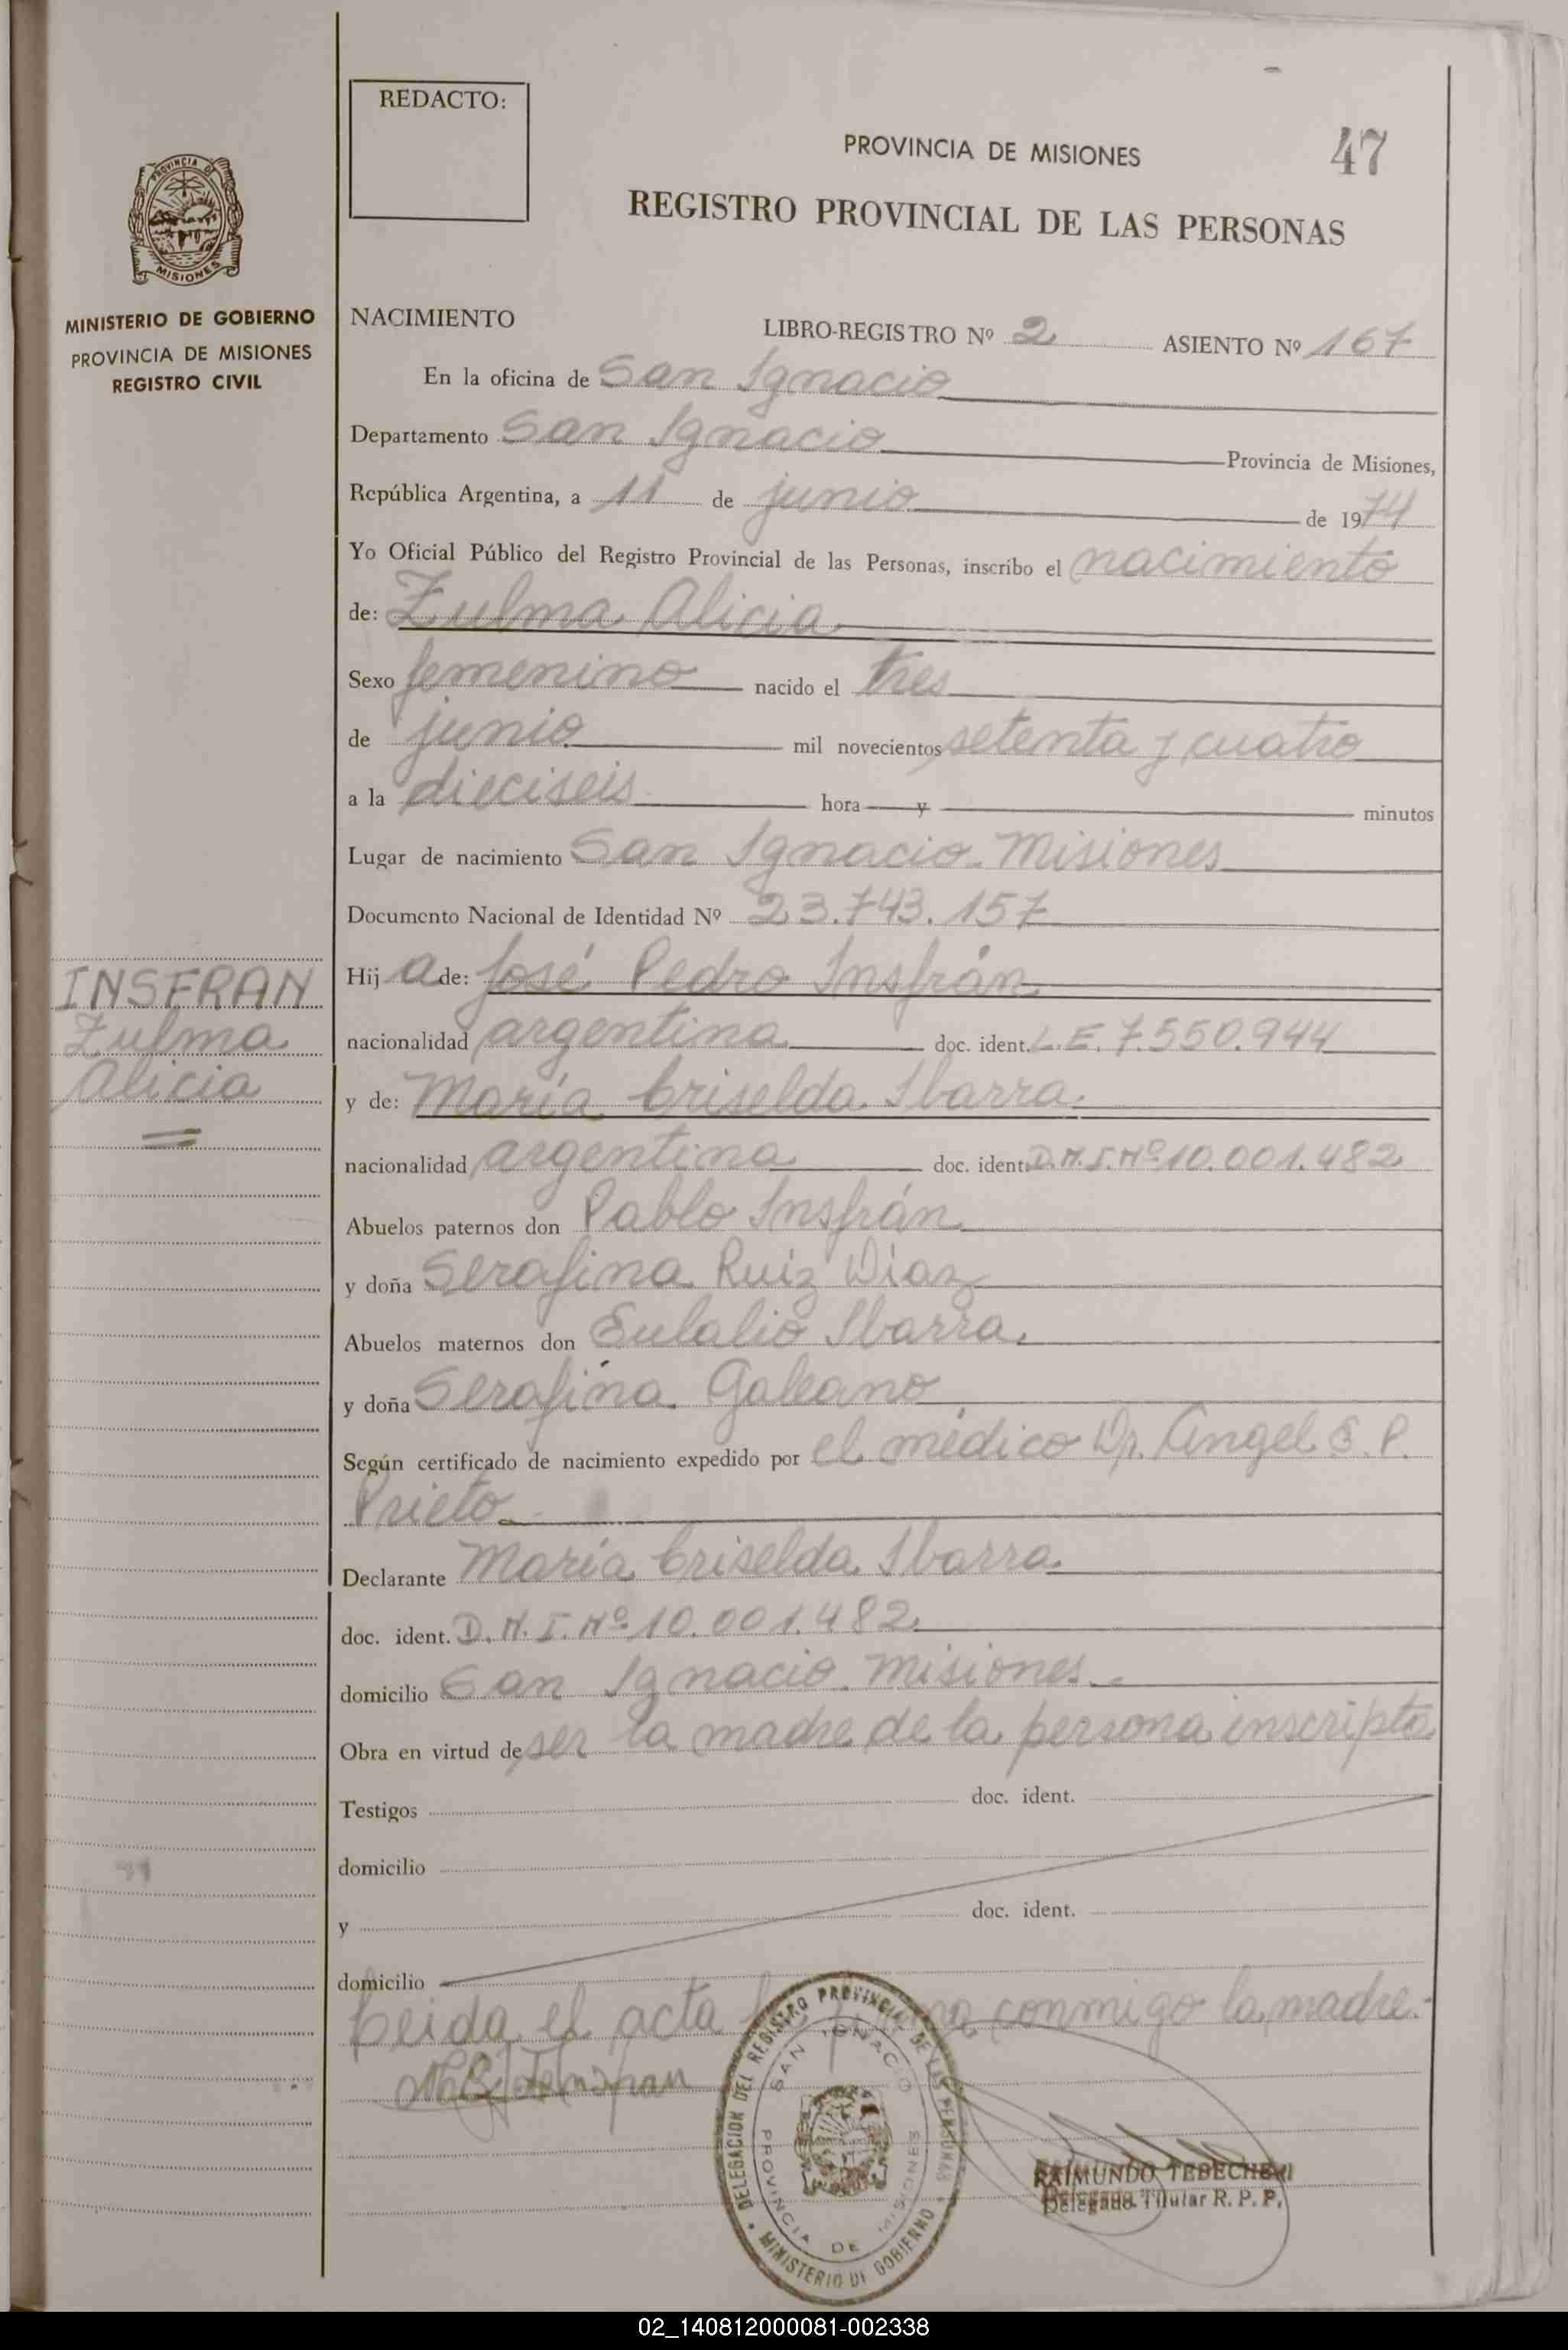 REDACTO:
PROVINCIA DE MISIONES
47
REGISTRO PROVINCIAL DE LAS PERSONAS
PROVINCIA DE
MISIONES
MINISTERIO DE GOBIERNO
PROVINCIA DE MISIONES
REGISTRO CIVIL
NACIMIENTO LIBRO-REGISTRO Nº 2 ASIENTO Nº 167
En la oficina de San Ignacio
Departamento San Ignacio Provincia de Misiones,
República Argentina, a 11 de junio de 1974
Yo Oficial Público del Registro Provincial de las Personas, inscribo el nacimiento
de: Zulma Alicia
Sexo femenino nacido el tres
de junio mil novecientos setenta y cuatro
a la dieciseis hora y minutos
Lugar de nacimiento San Ignacio. Misiones
Documento Nacional de Identidad Nº 23.743.157
INSFRAN
Zulma
Alicia
Hija de: José Pedro Insfrán
nacionalidad argentina doc. ident. L.E. 7.550.944
y de: María Criselda Ibarra.
nacionalidad argentina doc. ident. D.N.I. Nº 10.001.482
Abuelos paternos don Pablo Insfrán
y doña Serafina Ruiz Diaz
Abuelos maternos don Eulalio Ibarra.
y doña Serafina Galeano
Según certificado de nacimiento expedido por el médico Dr. Angel S. P.
Prieto
Declarante María Criselda Ibarra
doc. ident. D.N.I. Nº 10.001.482
domicilio San Ignacio. Misiones.
Obra en virtud de ser la madre de la persona inscripta
Testigos doc. ident.
domicilio
y doc. ident.
domicilio
Leida el acta conmigo la madre.-
DELEGACION DEL REGISTRO PROVINCIAL DE LAS PERSONAS
SAN IGNACIO
PROVINCIA DE MISIONES
MINISTERIO DE GOBIERNO
RAIMUNDO
Delegado Titular R. P. P.
02_140812000081-002338